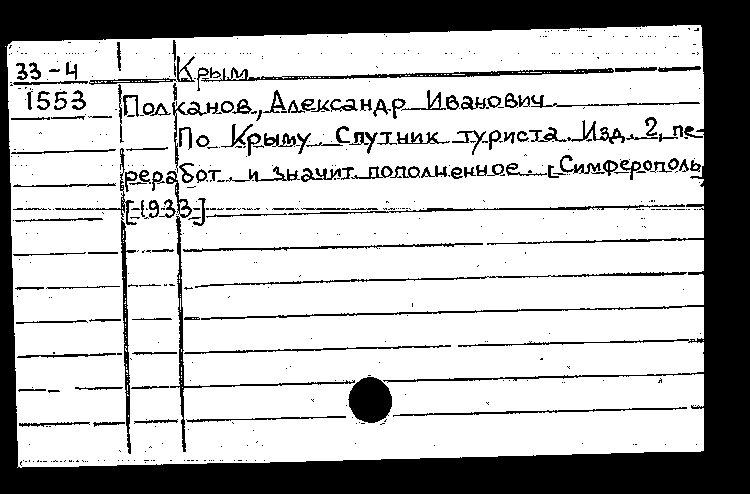 33-4 Крым
1553 Полканов, Александр Иванович
По Крыму. Спутник туриста. Изд. 2, пе-
реработ. и значит. пополненное. [Симферополь,
[1933]